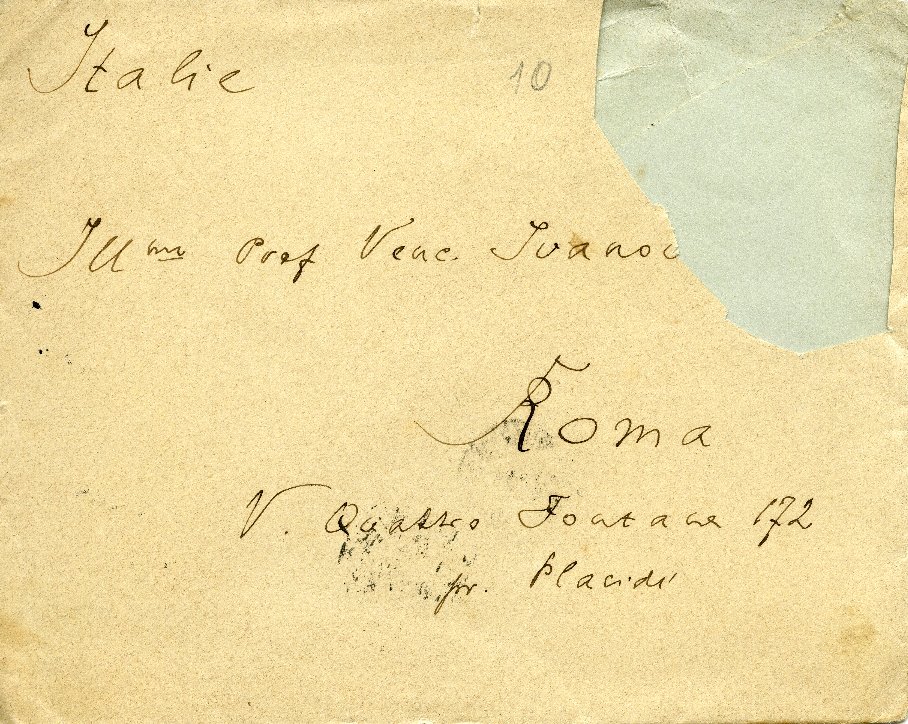 Italie 10
Illmo Prof Venc. Ivanov
Roma
V. Quattro Fontane 172
pr. Placidi